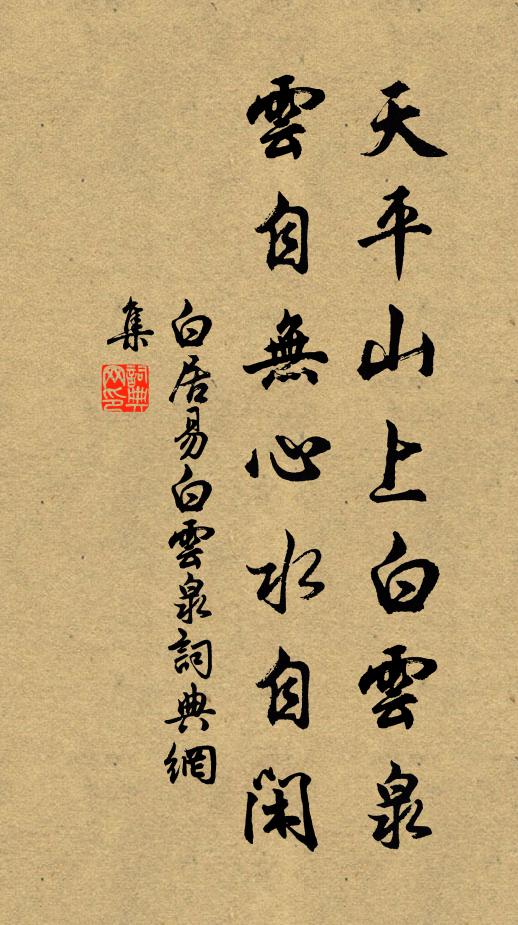 天平山上白雲泉
雲自無心水自閑
白居易白雲泉詞典網
集
詞典网印